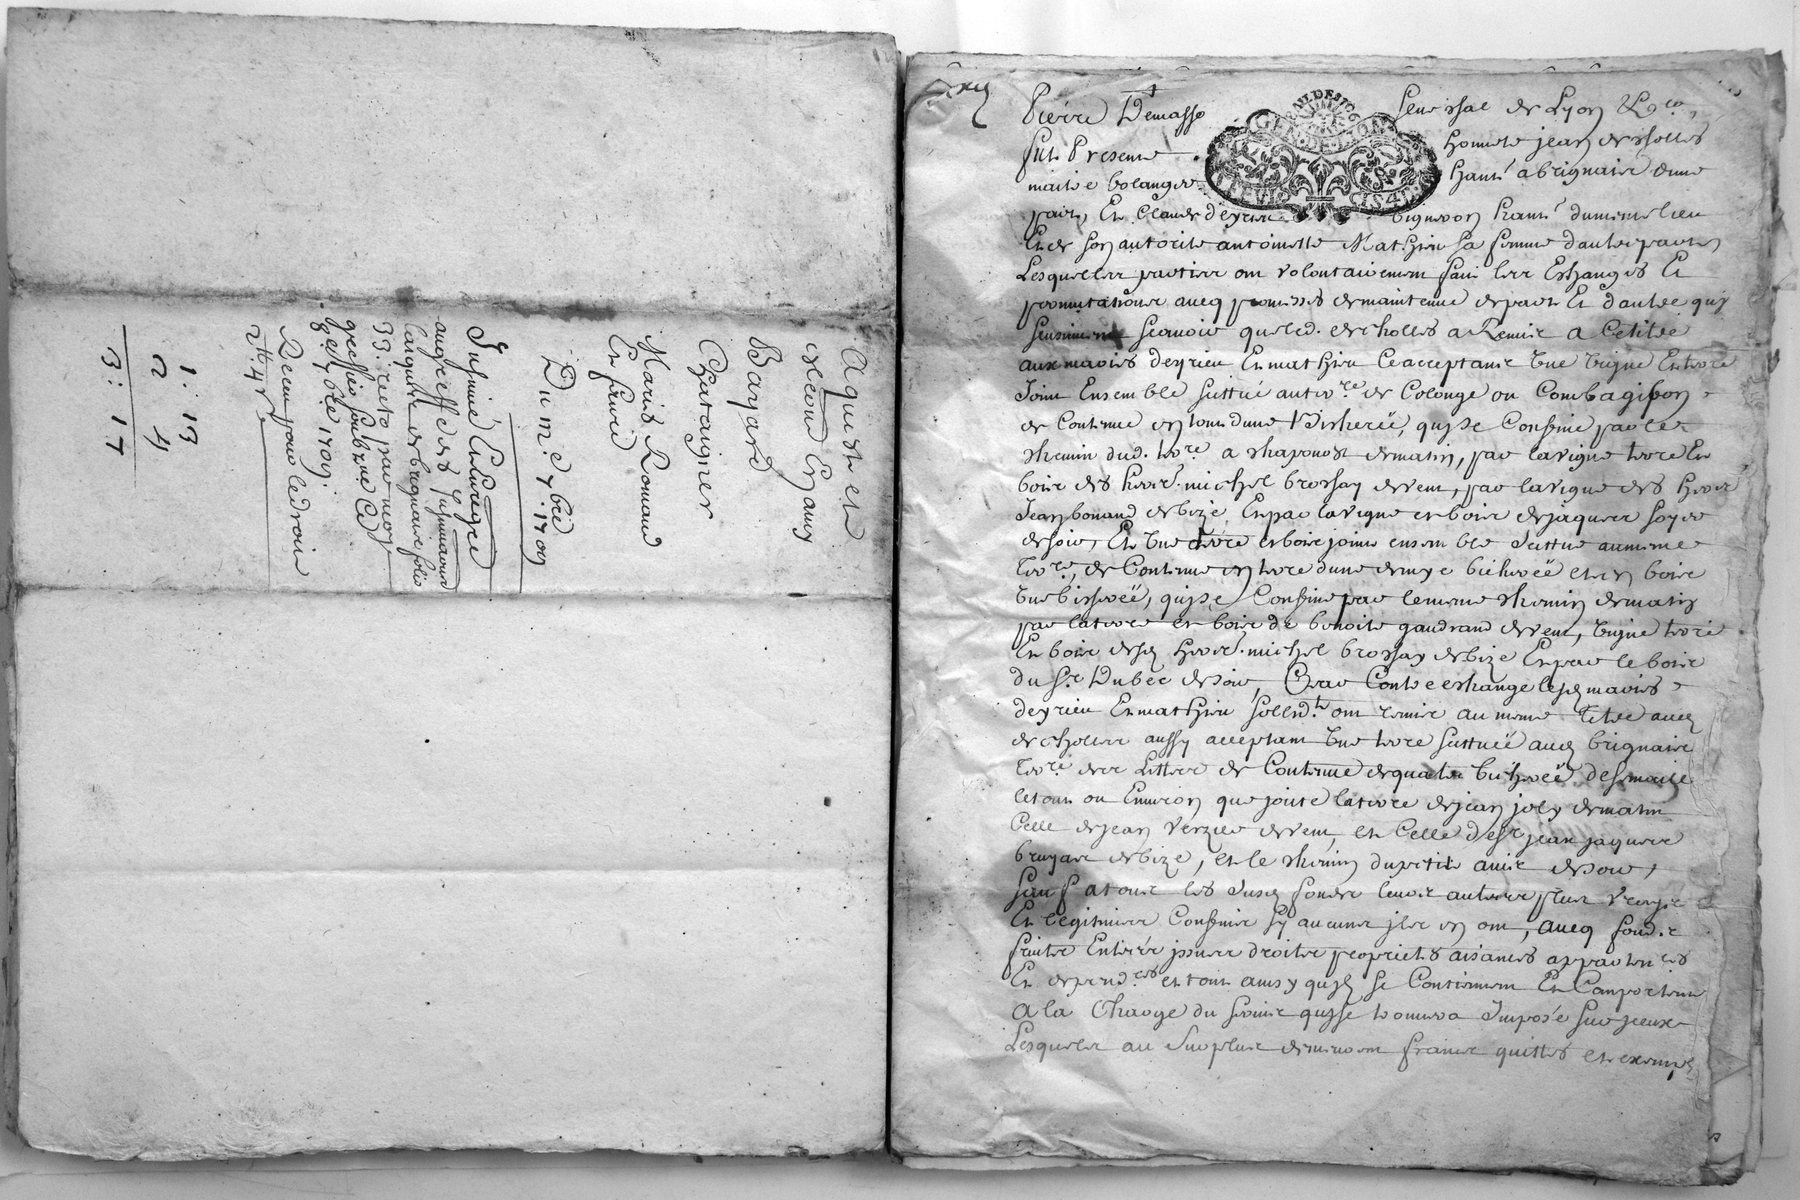 Aqueste et
Bayard
Chataignier
Marie Romand
Du m.e 7bre 1709
Insinué Enregré
au greffe des Insinuaons
laiques de brignais folio
33. recto par moy
greffier soubzné ce
7bre 1709.
Receu pour le droit
2tt. 4 s.
1 : 13
2 4
3 : 17
Pierre Demasso Senechal de Lyon
fut Presente honneste jean desholles
maitre bolanger hantt a brignais dune
part, Et Claude deyrieu vigneron hantt du mesme lieu
Et de son autorité antoinette Mathieu sa femme dautre part
Lesquelles parties ont volontairement fait les Eschanges Et
permutations avec promesses de maintenue de part Et dautre quy
sensuivent scavoir que led. desholles a Remis a Cetitre
aux mariés deyrieu Et mathieu ce acceptant Une Vigne Et terre
Joint Ensemble scittué au terre. de Colonge ou Combagibon
de Contenue en tout dune Bicherée, quy se Confine par le
chemin dud. terre. a chaponost de matin, par la vigne terre Et
bois des hoirs. michel brossay de vent, par la vigne des hoirs
Jean bonand de bize, Et par la vigne et bois de jaques
de soir, Et Une terre et bois joint ensemble scittué au mesme
terre, de Contenue en terre dune demye bicherée et en bois
Une bicherée, quy se Confine par le mesme chemin de matin
par la terre et bois de benoite gaudrand de vent, vigne terre
Et bois desd. hoirs. michel brossay de bize Et par le bois
du Sr. Dubec de soir, Et par Contre eschange lesd. mariés
deyrieu Et mathieu sollidt. ont remis au mesme titre aud.
desholles aussy acceptant Une terre scittuée aud. brignais
terre. des de Contenue de quatre bicherée de semaille
le tout ou Environ que joint la terre de jean joly de matin
Celle de jean Verzier de vent, et Celle de Sr jean jaques
bruyas de bize, et le chemin du petit de soir,
sauf a tous les susd. fonds leurs autres plus vrays
Et legitimes Confins sy aucuns ils en ont, avec fonds
fruits Entrées issues droits proprietés aisances appartences
Et dependces et tout ainsy quils se Contiennent Et Comportent
A la Charge du servis quy se trouvera Imposé sur yceux
Lesquels au surplus demeurent francs quittes et exempts